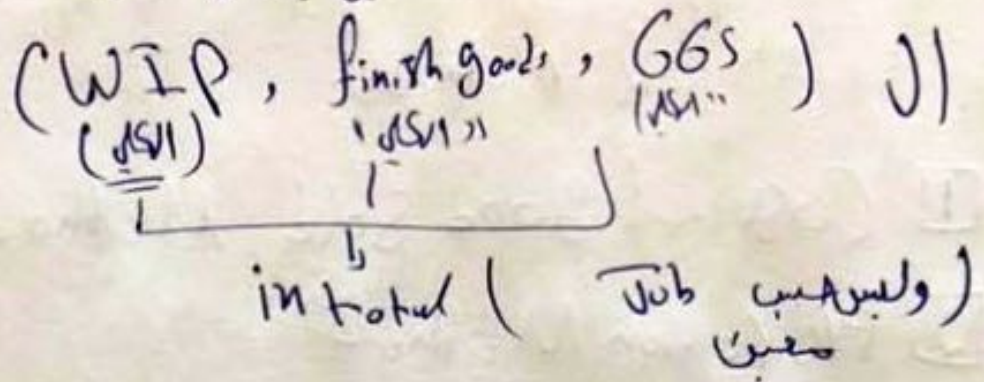 ال (WIP, finish goods, GGS)
(الكلي) "الكلي" "الكلي"
in total (وليس حسب Job
معين)